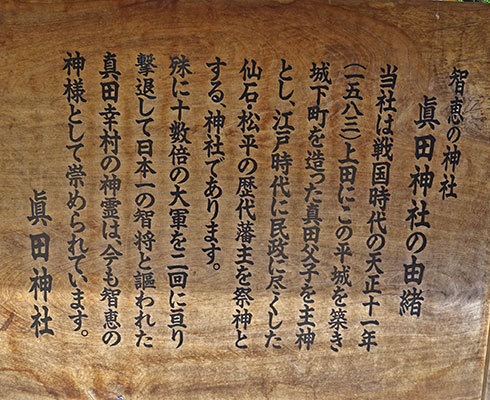 智恵の神社
眞田神社の由緒
当社は戦国時代の天正十一年
(一五八三)上田にこの平城を築き
城下町を造った真田父子を主神
とし、江戸時代に民政に尽くした
仙石・松平の歴代藩主を祭神と
する、神社であります。
殊に十数倍の大軍を二回に亘り
撃退して日本一の智将と謳われた
真田幸村の神霊は、今も智恵の
神様として崇められています。
眞田神社